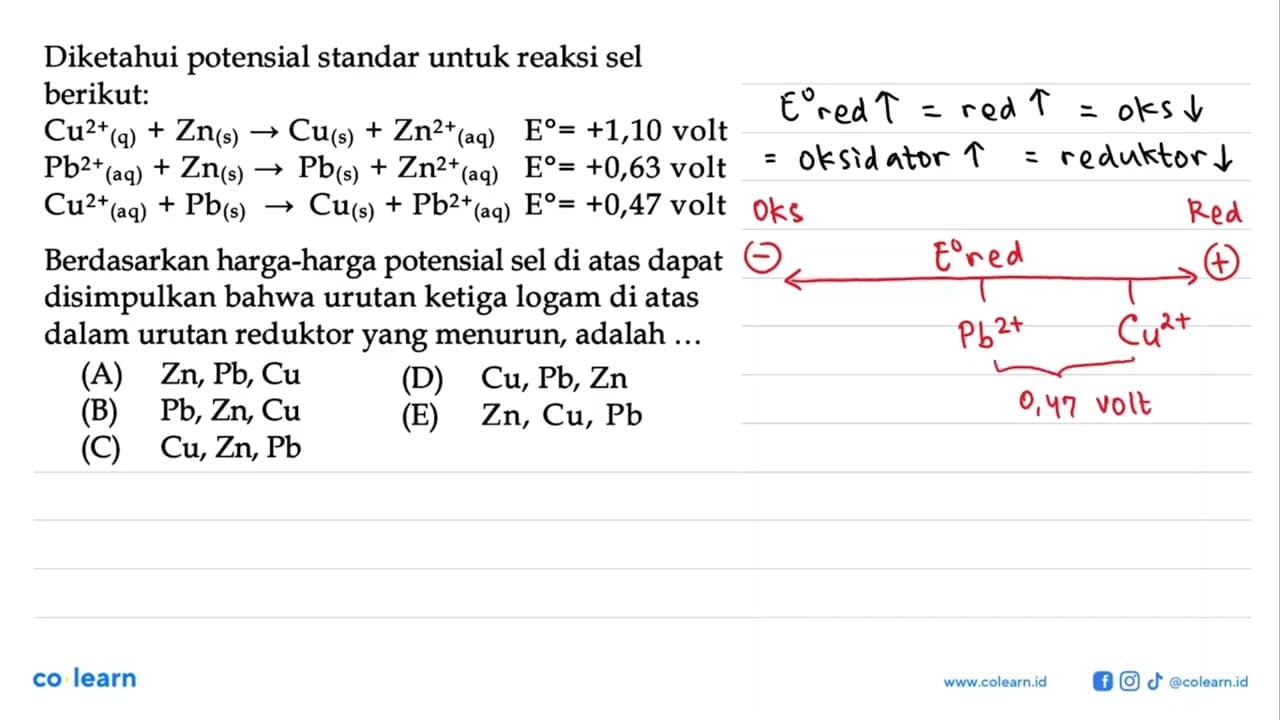 Diketahui potensial standar untuk reaksi sel
berikut:
Cu²⁺(q) + Zn(s) → Cu(s) + Zn²⁺(aq) E°= +1,10 volt
Pb²⁺(aq) + Zn(s) → Pb(s) + Zn²⁺(aq) E°= +0,63 volt
Cu²⁺(aq) + Pb(s) → Cu(s) + Pb²⁺(aq) E°= +0,47 volt
Berdasarkan harga-harga potensial sel di atas dapat
disimpulkan bahwa urutan ketiga logam di atas
dalam urutan reduktor yang menurun, adalah ...
(A) Zn, Pb, Cu
(B) Pb, Zn, Cu
(C) Cu, Zn, Pb
(D) Cu, Pb, Zn
(E) Zn, Cu, Pb
E°red↑ = red ↑ = oks ↓
= oksidator ↑ = reduktor ↓
Oks Red
(-) E°red (+)
Pb²⁺ Cu²⁺
0,47 volt
co learn
www.colearn.id @colearn.id